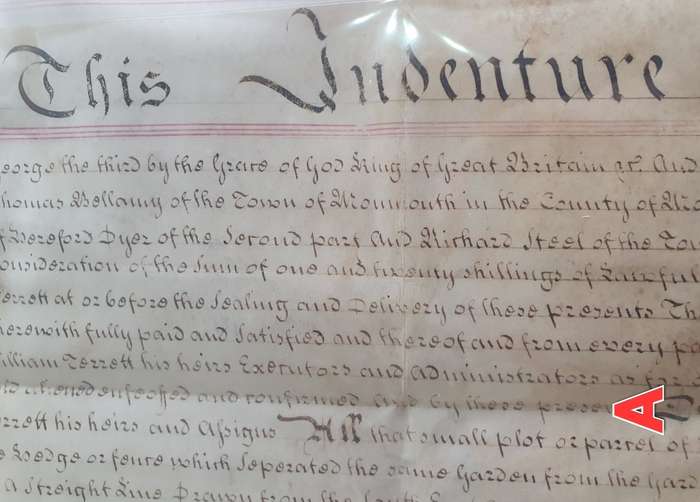 This Indenture
eorge the third by the Grace of God King of Great Britain &c. And
homas Bellamy of the Town of Monmouth in the County of Mo
f Hereford Dyer of the Second part And Richard Steel of the To
onsideration of the Sum of one and twenty shillings of Lawful
errett at or before the Sealing and Delivery of these presents Th
herewith fully paid and Satisfied and thereof and from every pa
illiam Terrett his heirs Executors and Administrators
enfeoffed and confirmed And by these presen
A
rrett his heirs and Assigns All that small plot or parcel of
e Hedge or fence which Seperated the same Garden from the Gard
a Streight Line Drawn from the South